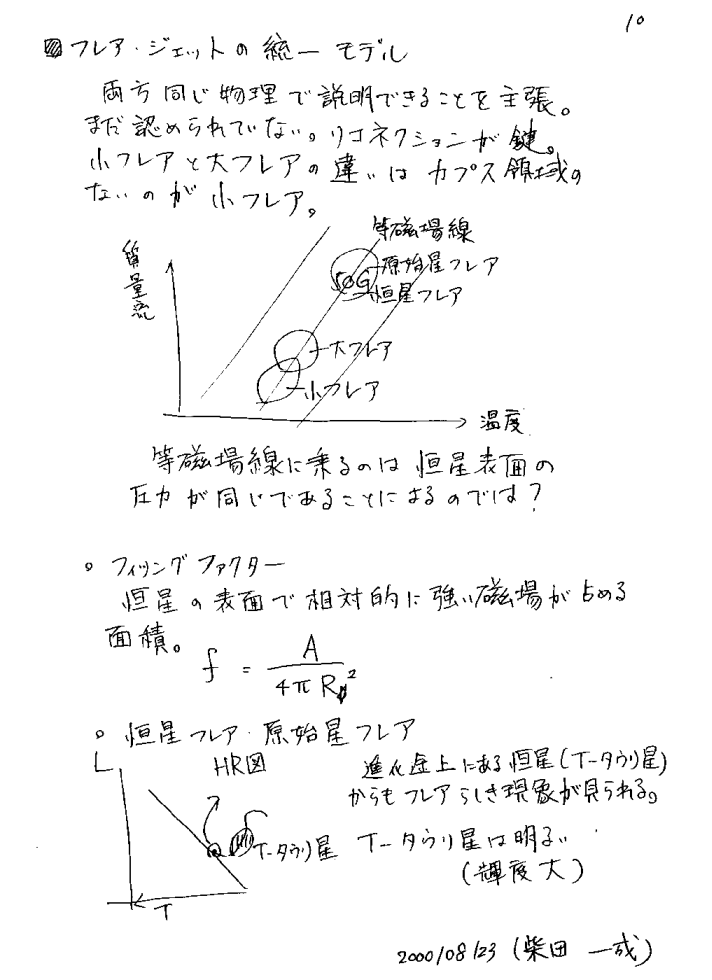 10
フレア・ジェットの統一モデル
両方同じ物理で説明できることを主張。
まだ認められていない。リコネクションが鍵。
小フレアと大フレアの違いはカプス領域の
ないのが小フレア。
等磁場線
質量流
原始星フレア
恒星フレア
大フレア
小フレア
温度
等磁場線に乗るのは恒星表面の
圧力が同じであることによるのでは?
。フィリングファクター
恒星の表面で相対的に強い磁場が占める
面積。
f = A / 4πR²
。恒星フレア・原始星フレア
L
HR図
進化途上にある恒星(T-タウリ星)
からもフレアらしき現象が見られる。
T-タウリ星
T-タウリ星は明るい
(輝度大)
T
2000/08/23 (柴田 一成)